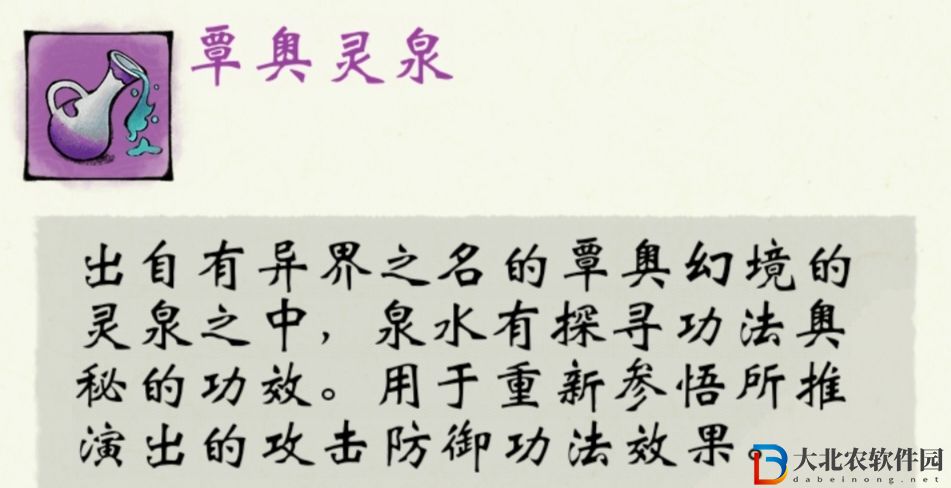 覃奥灵泉
出自有异界之名的覃奥幻境的
灵泉之中，泉水有探寻功法奥
秘的功效。用于重新参悟所推
演出的攻击防御功法效果。
大北农软件园
dabeinong.net